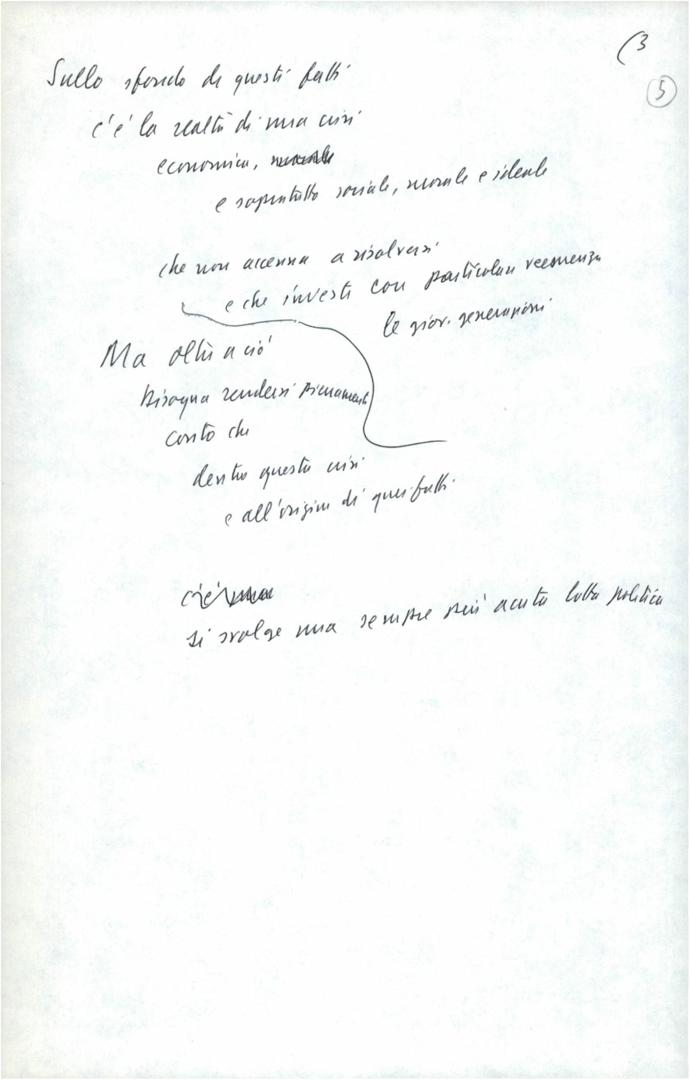 (3
5
Sullo sfondo di questi fatti
c'è la realtà di una crisi
economica, morale
e soprattutto sociale, morale e ideale
che non accenna a risolversi
e che investe con particolare veemenza
le giov. generazioni
Ma oltre a ciò
bisogna rendersi pienamente
conto che
dentro questa crisi
e all'origine di quei fatti
c'è una
si svolge una sempre più acuta lotta politica